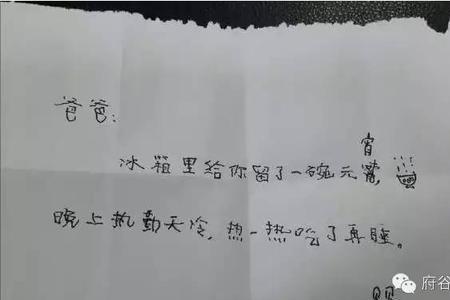 爸爸:
冰箱里给你留了一碗元宵,
晚上执勤天冷,热一热吃了再睡。
府谷